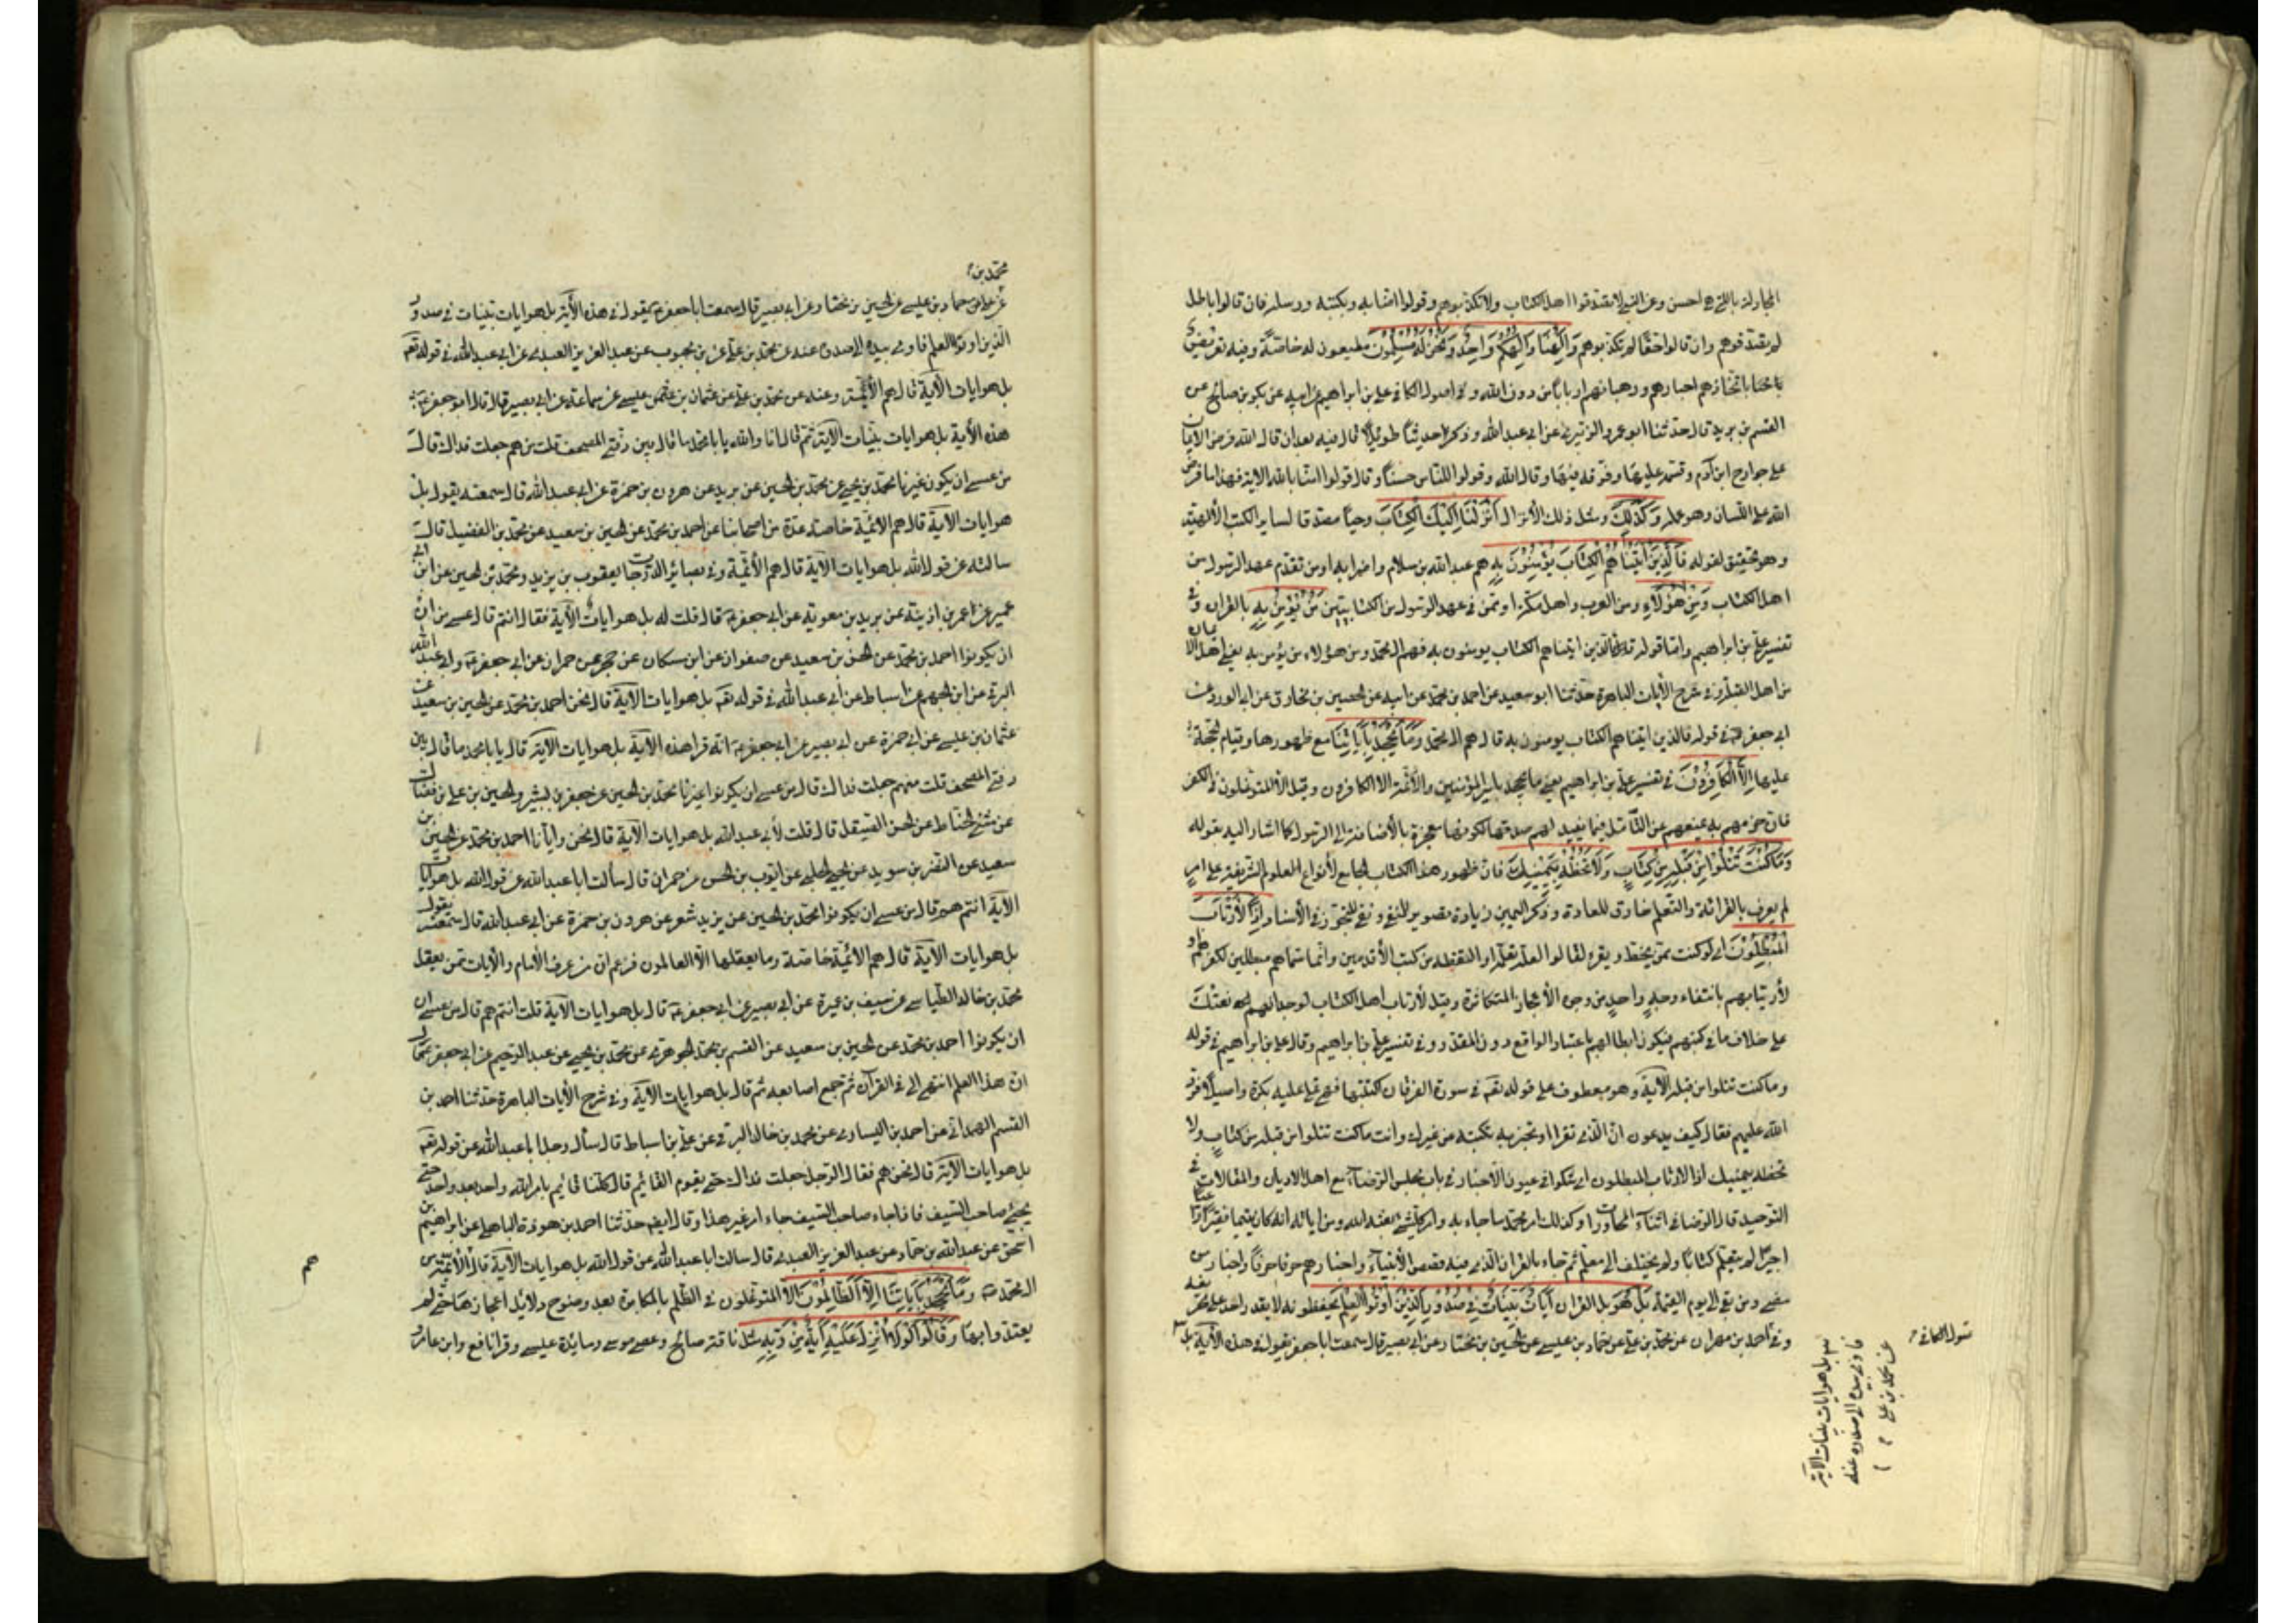 المجادلة بالتي هي احسن وعن النبي لا تصدقوا اهل الكتاب ولا تكذبوهم وقولوا امنا بالله وبكتبه ورسله فان قالوا باطلا
لم تصدقوهم وان قالوا حقا لم تكذبوهم وَاِلٰهُنَا وَاِلٰهُكُمْ وَاحِدٌ وَنَحْنُ لَهُ مُسْلِمُونَ مطيعون له خاصة وفيه تعريض
باتخاذهم احبارهم ورهبانهم اربابا من دون الله وفي اصول الكافي علي بن ابراهيم عن ابيه عن بكر بن صالح عن
القسم بن بريد قال حدثنا ابو عمرو الزبيري عن ابي عبد الله وذكر حديثا طويلا قال فيه بعد ان قال الله فرض الايمان
على جوارح ابن آدم وقسمه عليها وفرقه فيها وقال الله وقولوا للناس حسنا وقال قولوا امنا بالله الاية فهذا ما فرض
الله على اللسان وهو عمله وَكَذٰلِكَ ومثل ذلك الانزال اَنْزَلْنَا اِلَيْكَ الْكِتَابَ وحيا مصدقا لساير الكتب الالهية
وهو تحقيق لقوله فَالَّذِينَ آتَيْنَاهُمُ الْكِتَابَ يُؤْمِنُونَ بِهِ هم عبد الله بن سلام واضرابه او من تقدم عهد الرسول من
اهل الكتاب وَمِنْ هٰؤُلَاءِ ومن العرب او اهل مكة او ممن في عهد الرسول من الكتابيين مَنْ يُؤْمِنُ بِهِ بالقران وفي
تفسير علي بن ابراهيم واما قوله فالذين اتيناهم الكتاب يومنون به فهم ال محمد ومن هؤلاء من يؤمن به يعني اهل الايمان
من اهل القبلة وفي شرح الآيات الباهرة حدثنا ابو سعيد عن احمد بن محمد عن ابيه عن الحصين بن مخارق عن ابي الورد عن
ابي جعفر في قوله فالذين اتيناهم الكتاب يومنون به قال هم ال محمد وَمَا يَجْحَدُ بِآيَاتِنَا مع ظهورها وقيام الحجة
عليها اِلَّا الْكَافِرُونَ في تفسير علي بن ابراهيم يعني ما يجحد بامير المؤمنين والائمة الا الكافرون وقيل الا المتوغلون في الكفر
فان جزمهم به يمنعهم عن التامل فيما يفيد لهم صدقها لكونها معجزة بالاضافة الى الرسول كما اشار اليه بقوله
وَمَا كُنْتَ تَتْلُوا مِنْ قَبْلِهِ مِنْ كِتَابٍ وَلَا تَخُطُّهُ بِيَمِينِكَ فان ظهور هذا الكتاب الجامع لانواع العلوم الشريفة على امي
لم يعرف بالقرائة والتعلم خارق للعادة وذكر اليمين زيادة تصوير للمنفي ونفي للتجوز في الاسناد اِذًا لَارْتَابَ
الْمُبْطِلُونَ اي لو كنت ممن يخط ويقرء لقالوا لعله تعلمه او التقطه من كتب الاقدمين وانما سماهم مبطلين لكفرهم او
لارتيابهم بانتفاء وجه واحد من وجوه الاعجاز المتكاثرة وقيل لارتاب اهل الكتاب لوجدانهم نعتك
على خلاف ما في كتبهم فيكون ابطالهم باعتبار الواقع دون المقدر وفي تفسير علي بن ابراهيم وقال علي بن ابراهيم في قوله
وما كنت تتلوا من قبله الآية وهو معطوف على قوله تعه في سورة الفرقان اكتتبها فهي تملى عليه بكرة واصيلا فرد
الله عليهم فقال كيف يدعون ان الذي تقرا او تخبر به تكتبه من غيرك وانت ما كنت تتلوا من قبله من كتاب ولا
تخطه بيمينك اذا لارتاب المبطلون اي شكوا في عيون الاخبار في باب مجلس الرضا مع اهل الاديان والمقالات في
التوحيد قال الرضا في اثناء المحاورات وكذلك امر محمد وما جاء به وامر كل شيء بعثه الله ومن اياته انه كان يتيما فقيرا راعيا
اجيرا لم يتعلم كتابا ولم يختلف الى معلم ثم جاء بالقران الذي فيه قصص الانبياء واخبارهم حرفا حرفا واخبار من
مضى ومن بقي الى يوم القيمة بَلْ هُوَ بل القران آيَاتٌ بَيِّنَاتٌ فِي صُدُورِ الَّذِينَ اُوتُوا الْعِلْمَ يحفظونه لا يقدر احد على تحريفه
وفي احمد بن مهران عن محمد بن علي عن حماد بن عيسى عن الحسين بن المختار عن ابي بصير قال سمعت ابا جعفر يقول في هذه الآية بل
اصول الكافي
هو ايات بينات الآية
فاومى بيده الى صدره عنه
عن محمد بن علي
محمد بن
علي عن حماد بن عيسى عن الحسين بن المختار عن ابي بصير قال سمعت ابا جعفر يقول في هذه الآية بل هو ايات بينات في صدور
الذين اوتوا العلم فاومى بيده الى صدره عنه عن محمد بن علي عن ابن محبوب عن عبد العزيز العبدي عن ابي عبد الله في قوله تعه
بل هو ايات الآية قال هم الائمة وعنه عن محمد بن علي عن عثمان بن عيسى عن سماعة عن ابي بصير قال قال ابو جعفر
هذه الآية بل هو ايات بينات الآية ثم قال اما والله يا با محمد ما قال بين دفتي المصحف قلت من هم جعلت فداك قال
من عسى ان يكون غيرنا محمد بن يحيى عن محمد بن الحسين عن يزيد عن هرون بن حمزة عن ابي عبد الله قال سمعته يقول بل
هو ايات الآية قال هم الائمة خاصة عدة من اصحابنا عن احمد بن محمد عن الحسين بن سعيد عن محمد بن الفضيل قال
سالته عن قول الله بل هو ايات الآية قال هم الائمة وفي بصائر الدرجات يعقوب بن يزيد ومحمد بن الحسين عن ابن ابي
عمير عن عمر بن اذينة عن بريد بن معوية عن ابي جعفر قال قلت له بل هو ايات الآية فقال انتم قال من عسى
ان يكونوا احمد بن محمد عن الحسين بن سعيد عن صفوان عن ابن مسكان عن حجر عن حمران عن ابي جعفر وابي عبد الله
البرقي عن ابن الجهم عن اسباط عن ابي عبد الله في قوله تعه بل هو ايات الآية قال نحن احمد بن محمد عن الحسين بن سعيد عن
عثمان بن عيسى عن ابي حمزة عن ابي بصير عن ابي جعفر انه قرا هذه الآية بل هو ايات الآية قال يا با محمد ما قال بين
دفتي المصحف قلت منهم جعلت فداك قال من عسى ان يكونوا غيرنا محمد بن الحسين عن جعفر بن بشير والحسن بن علي بن فضال
عن مثنى الحناط عن الحسن الصيقل قال قلت لابي عبد الله بل هو ايات الآية قال نحن وايانا احمد بن محمد عن الحسين بن
سعيد عن النضر بن سويد عن يحيى الحلبي عن ايوب بن الحر عن حمران قال سألت ابا عبد الله عن قول الله بل هو ايات
الآية انتم هم قال من عسى ان يكونوا محمد بن الحسين عن يزيد شعر عن هرون بن حمزة عن ابي عبد الله قال سمعته يقول
بل هو ايات الآية قال هم الائمة خاصة وما يعقلها الا العالمون فزعم ان من عرف الامام والآيات ممن يعقل
محمد بن خالد الطيالسي عن سيف بن عميرة عن ابي بصير عن ابي جعفر قال بل هو ايات الآية قلت انتم هم قال من عسى ان
ان يكونوا احمد بن محمد عن الحسين بن سعيد عن القسم بن محمد الجوهري عن محمد بن يحيى عن عبد الرحيم عن ابي جعفر قال
ان هذا العلم انتهى الي في القرآن ثم جمع اصابعه ثم قال بل هو ايات الآية وفي شرح الآيات الباهرة حدثنا احمد بن
القسم الهمداني عن احمد بن السياري عن محمد بن خالد البرقي عن علي بن اسباط قال سأل رجل ابا عبد الله عن قوله تعه
بل هو ايات الآية قال نحن هم فقال الرجل جعلت فداك حتى يقوم القائم قال كلنا قائم بامر الله واحد بعد واحد حتى
يجيئ صاحب السيف فاذا جاء صاحب السيف جاء امر غير هذا وقال ايضا حدثنا احمد بن هوذة الباهلي عن ابراهيم بن
اسحق عن عبد الله بن حماد عن عبد العزيز العبدي قال سالت ابا عبد الله عن قول الله بل هو ايات الآية قال الائمة من
ال محمد وَمَا يَجْحَدُ بِآيَاتِنَا اِلَّا الظَّالِمُونَ الا المتوغلون في الظلم بالمكابرة بعد وضوح دلائل اعجازها حتى لم
يعتدوا بها وَقَالُوا لَوْلَا اُنْزِلَ عَلَيْهِ آيَةٌ مِنْ رَبِّهِ مثل ناقة صالح وعصى موسى ومائدة عيسى وقرا نافع وابن عامر و
هم